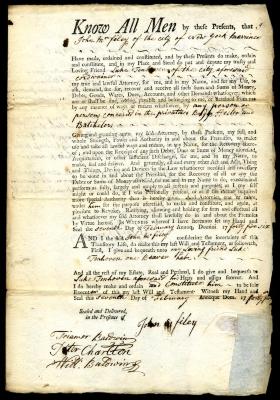 Know All Men by these Presents, that I
John Mc filey of the city of New York Marriner
Have made, ordained, and constituted, and by these Presents do make, ordain
and constitute, and in my Place and Stead do put and depute my trusty and
Loving Friend Luke Tenhoven of the City aforesaid
my true and lawful Attorney, for me, and in my Name, and for my Use, to
ask, demand, sue for, recover and receive all such Sum and Sums of Money,
Debts, Goods, Wares, Dues, Accounts, and other Demands whatsoever, which
are or shall be due, owing, payable and belonging to me, or detained from me
by any manner of ways or means whatsoever By any person or
persons concerned in the privateers Brigg Hester and
Batchelors
Giving and granting unto my said Attorney, by these Presents, my full and
whole Strength, Power and Authority in and about the Premises, to make
and take all lawful ways and means, in my Name, for the Recovery there-
of; and upon the Receipt of any such Debts or Sums of Money aforesaid,
Acquittances, or other sufficient Discharges, for me, and in my Name, to
make, seal and deliver. And generally, all and every other Act and Acts, Thing
and Things, Device and Devices in the Law whatsoever needful and necessary
to be done in and about the Premises, for the Recovery of all or any the
Debts or Sums of Money aforesaid, for me and in my Name to do,
perform as fully, largely and amply to all intents and purposes, as I my self
might or could do, if I was Personally present, or as if the matter required
more special Authority than is hereby given.
him for the purposes aforesaid, to make and constitute, and again, at
pleasure to Revoke, Ratifying, allowing and holding for firm and effectual all
and whatsoever my said Attorney shall lawfully do in and about the Premises
by Virtue hereof. In Witness whereof I have hereunto set my Hand and
Seal this seventh Day of February Annoq; Domini 17 forty five six
AND I the said John Mc filey considering the incertainty of this
Transitory Life, do make this my last Will and Testament, as followeth,
First, I give and bequeath unto my Loving friend Luke
Tenhoven one Beaver Hatt
And all the rest of my Estate, Real and Personal, I do give and bequeath to
Luke Tenhoven aforesaid his Heirs and assigns forever. And
I do hereby make and ordain and Constitute him to be sole
Executor of this my last Will and Testament. Witness my Hand and
Seal this seventh Day of February Annoque Dom. 17
Sealed and Delivered,
in the Presence of
John Mc filey
Trianor Baldwin
Peter Charlton
Will. Baldwin